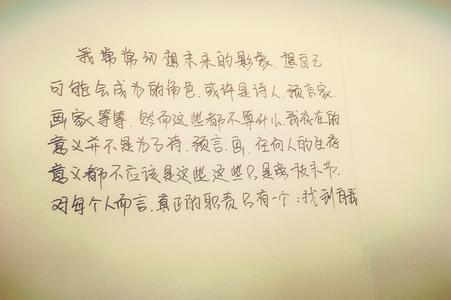 我常常幻想未来的影象，想自己
可能会成为的角色，或许是诗人，预言家，
画家等等，然而这些都不算什么，我存在的
意义并不是为了诗，预言，画，任何人的生存
意义都不应该是这些，这些只是旁枝末节，
对每个人而言，真正的职责只有一个：找到自我